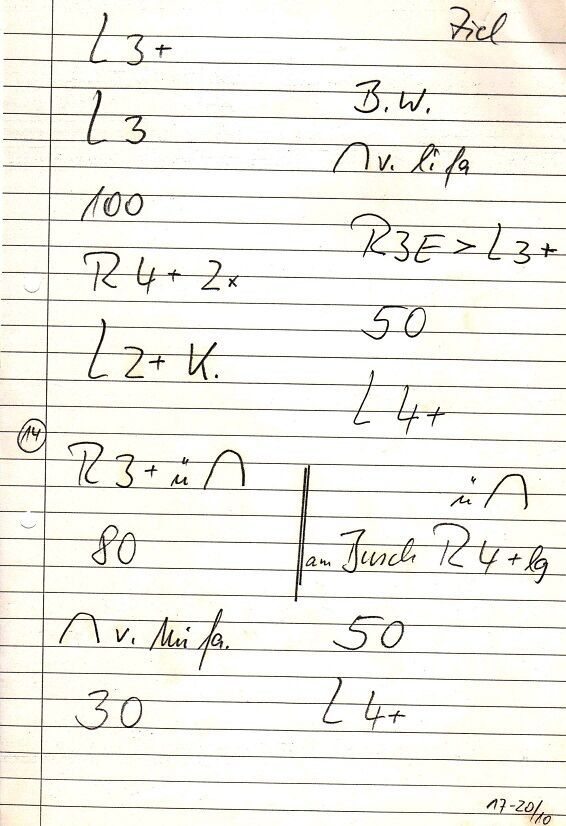 L 3+
L 3
100
R 4+ 2x
L 2+ K.
14
R 3+ ü ∩
80
∩ v. Mi fa.
30
Ziel
B.W.
∩ v. li fa
R3E > L 3+
50
L 4+
ü ∩
am Busch R 4+ lg
50
L 4+
17-20/10